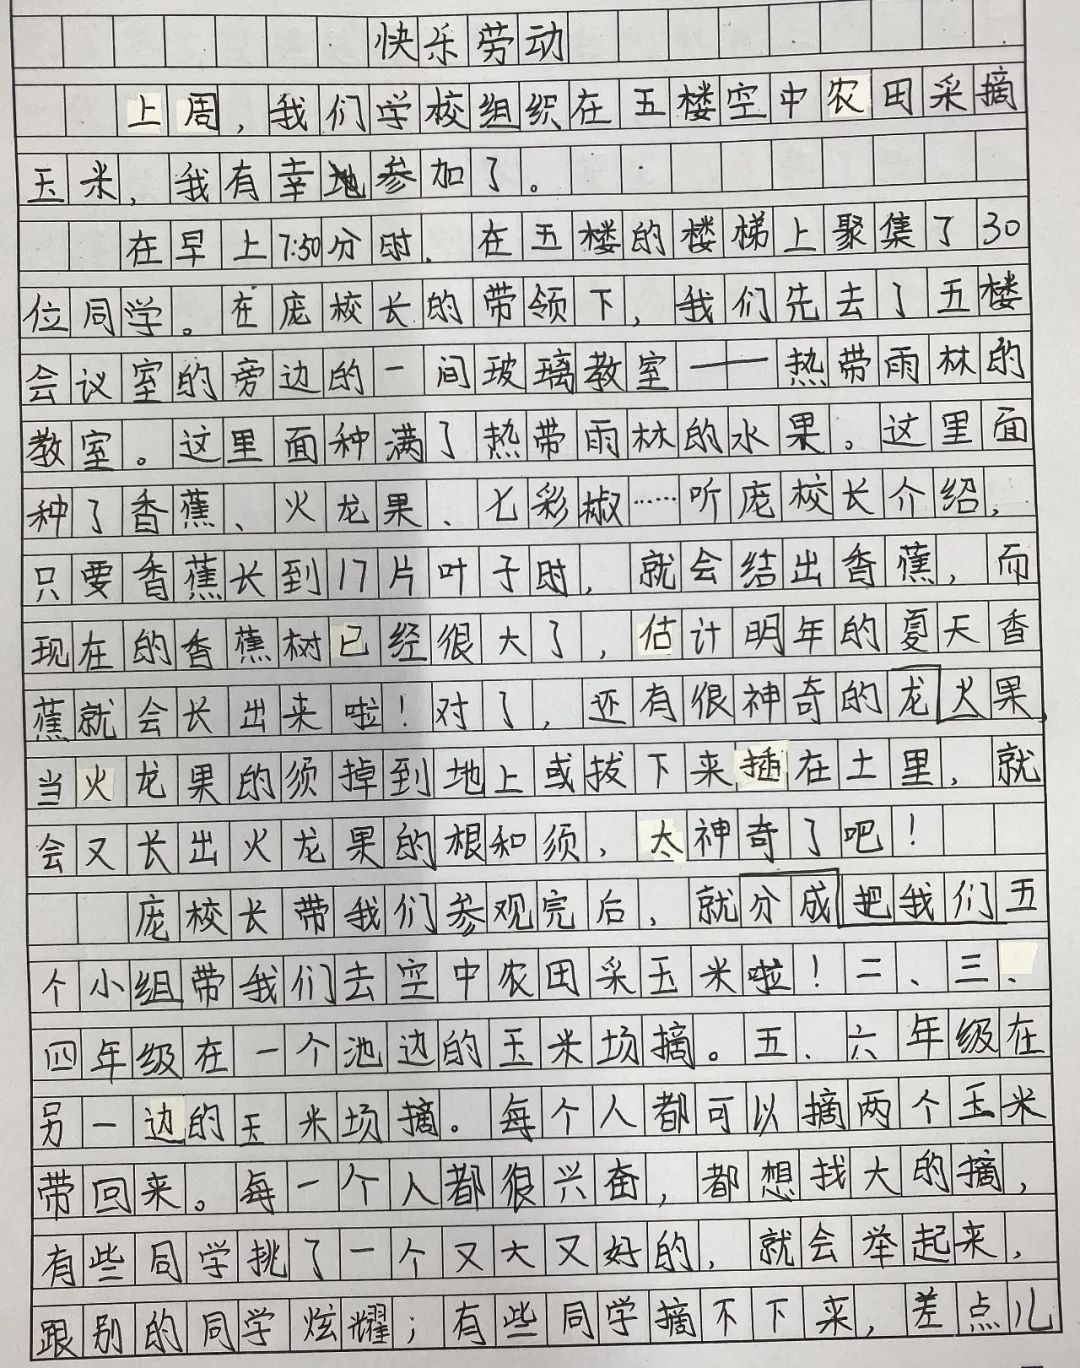 快乐劳动
上周，我们学校组织在五楼空中农田采摘
玉米，我有幸地参加了。
在早上7:50分时，在五楼的楼梯上聚集了30
位同学。在庞校长的带领下，我们先去了五楼
会议室的旁边的一间玻璃教室——热带雨林的
教室。这里面种满了热带雨林的水果。这里面
种了香蕉、火龙果、七彩椒……听庞校长介绍，
只要香蕉长到17片叶子时，就会结出香蕉，而
现在的香蕉树已经很大了，估计明年的夏天香
蕉就会长出来啦！对了，还有很神奇的龙火果，
当火龙果的须掉到地上或拔下来插在土里，就
会又长出火龙果的根和须，太神奇了吧！
庞校长带我们参观完后，就分成把我们五
个小组带我们去空中农田采玉米啦！二、三、
四年级在一个池边的玉米场摘。五、六年级在
另一边的玉米场摘。每个人都可以摘两个玉米
带回来。每一个人都很兴奋，都想找大的摘，
有些同学挑了一个又大又好的，就会举起来，
跟别的同学炫耀；有些同学摘不下来，差点儿